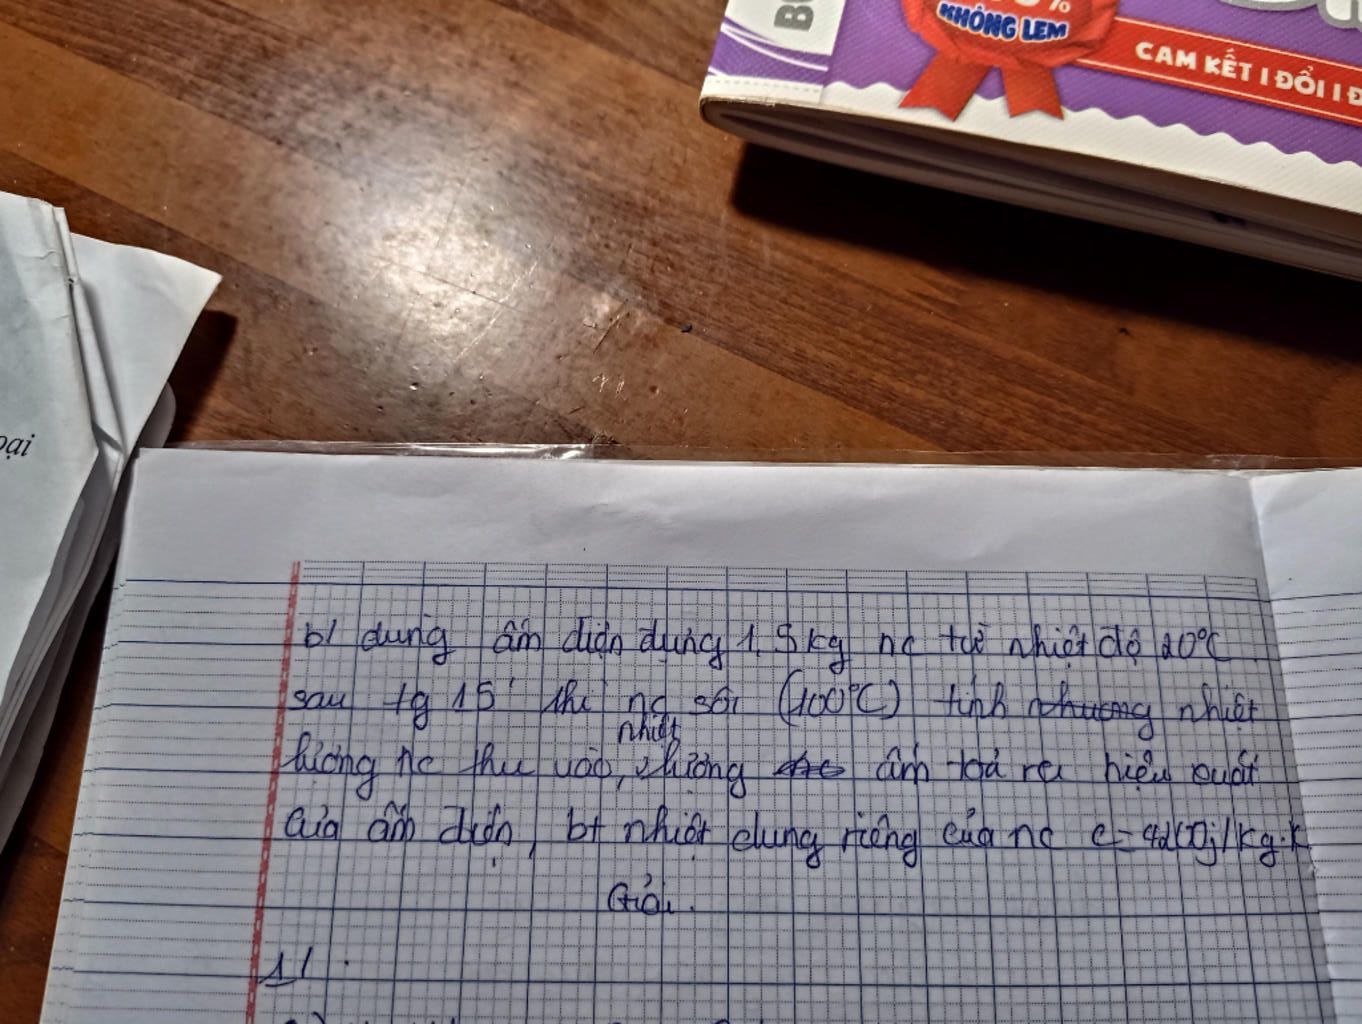 KHÔNG LEM
CAM KẾT 1 ĐỔI 1 Đ
oại
b/ dùng ấm điện đựng 1,5 kg nc từ nhiệt độ 20°C
sau tg 15' thì nc sôi (100°C) tính nhiệt
nhiệt
lượng nc thu vào, lượng ấm toả ra hiệu suất
của ấm điện, bt nhiệt dung riêng của nc c = 4200j/kg.K
Giải.
1/.